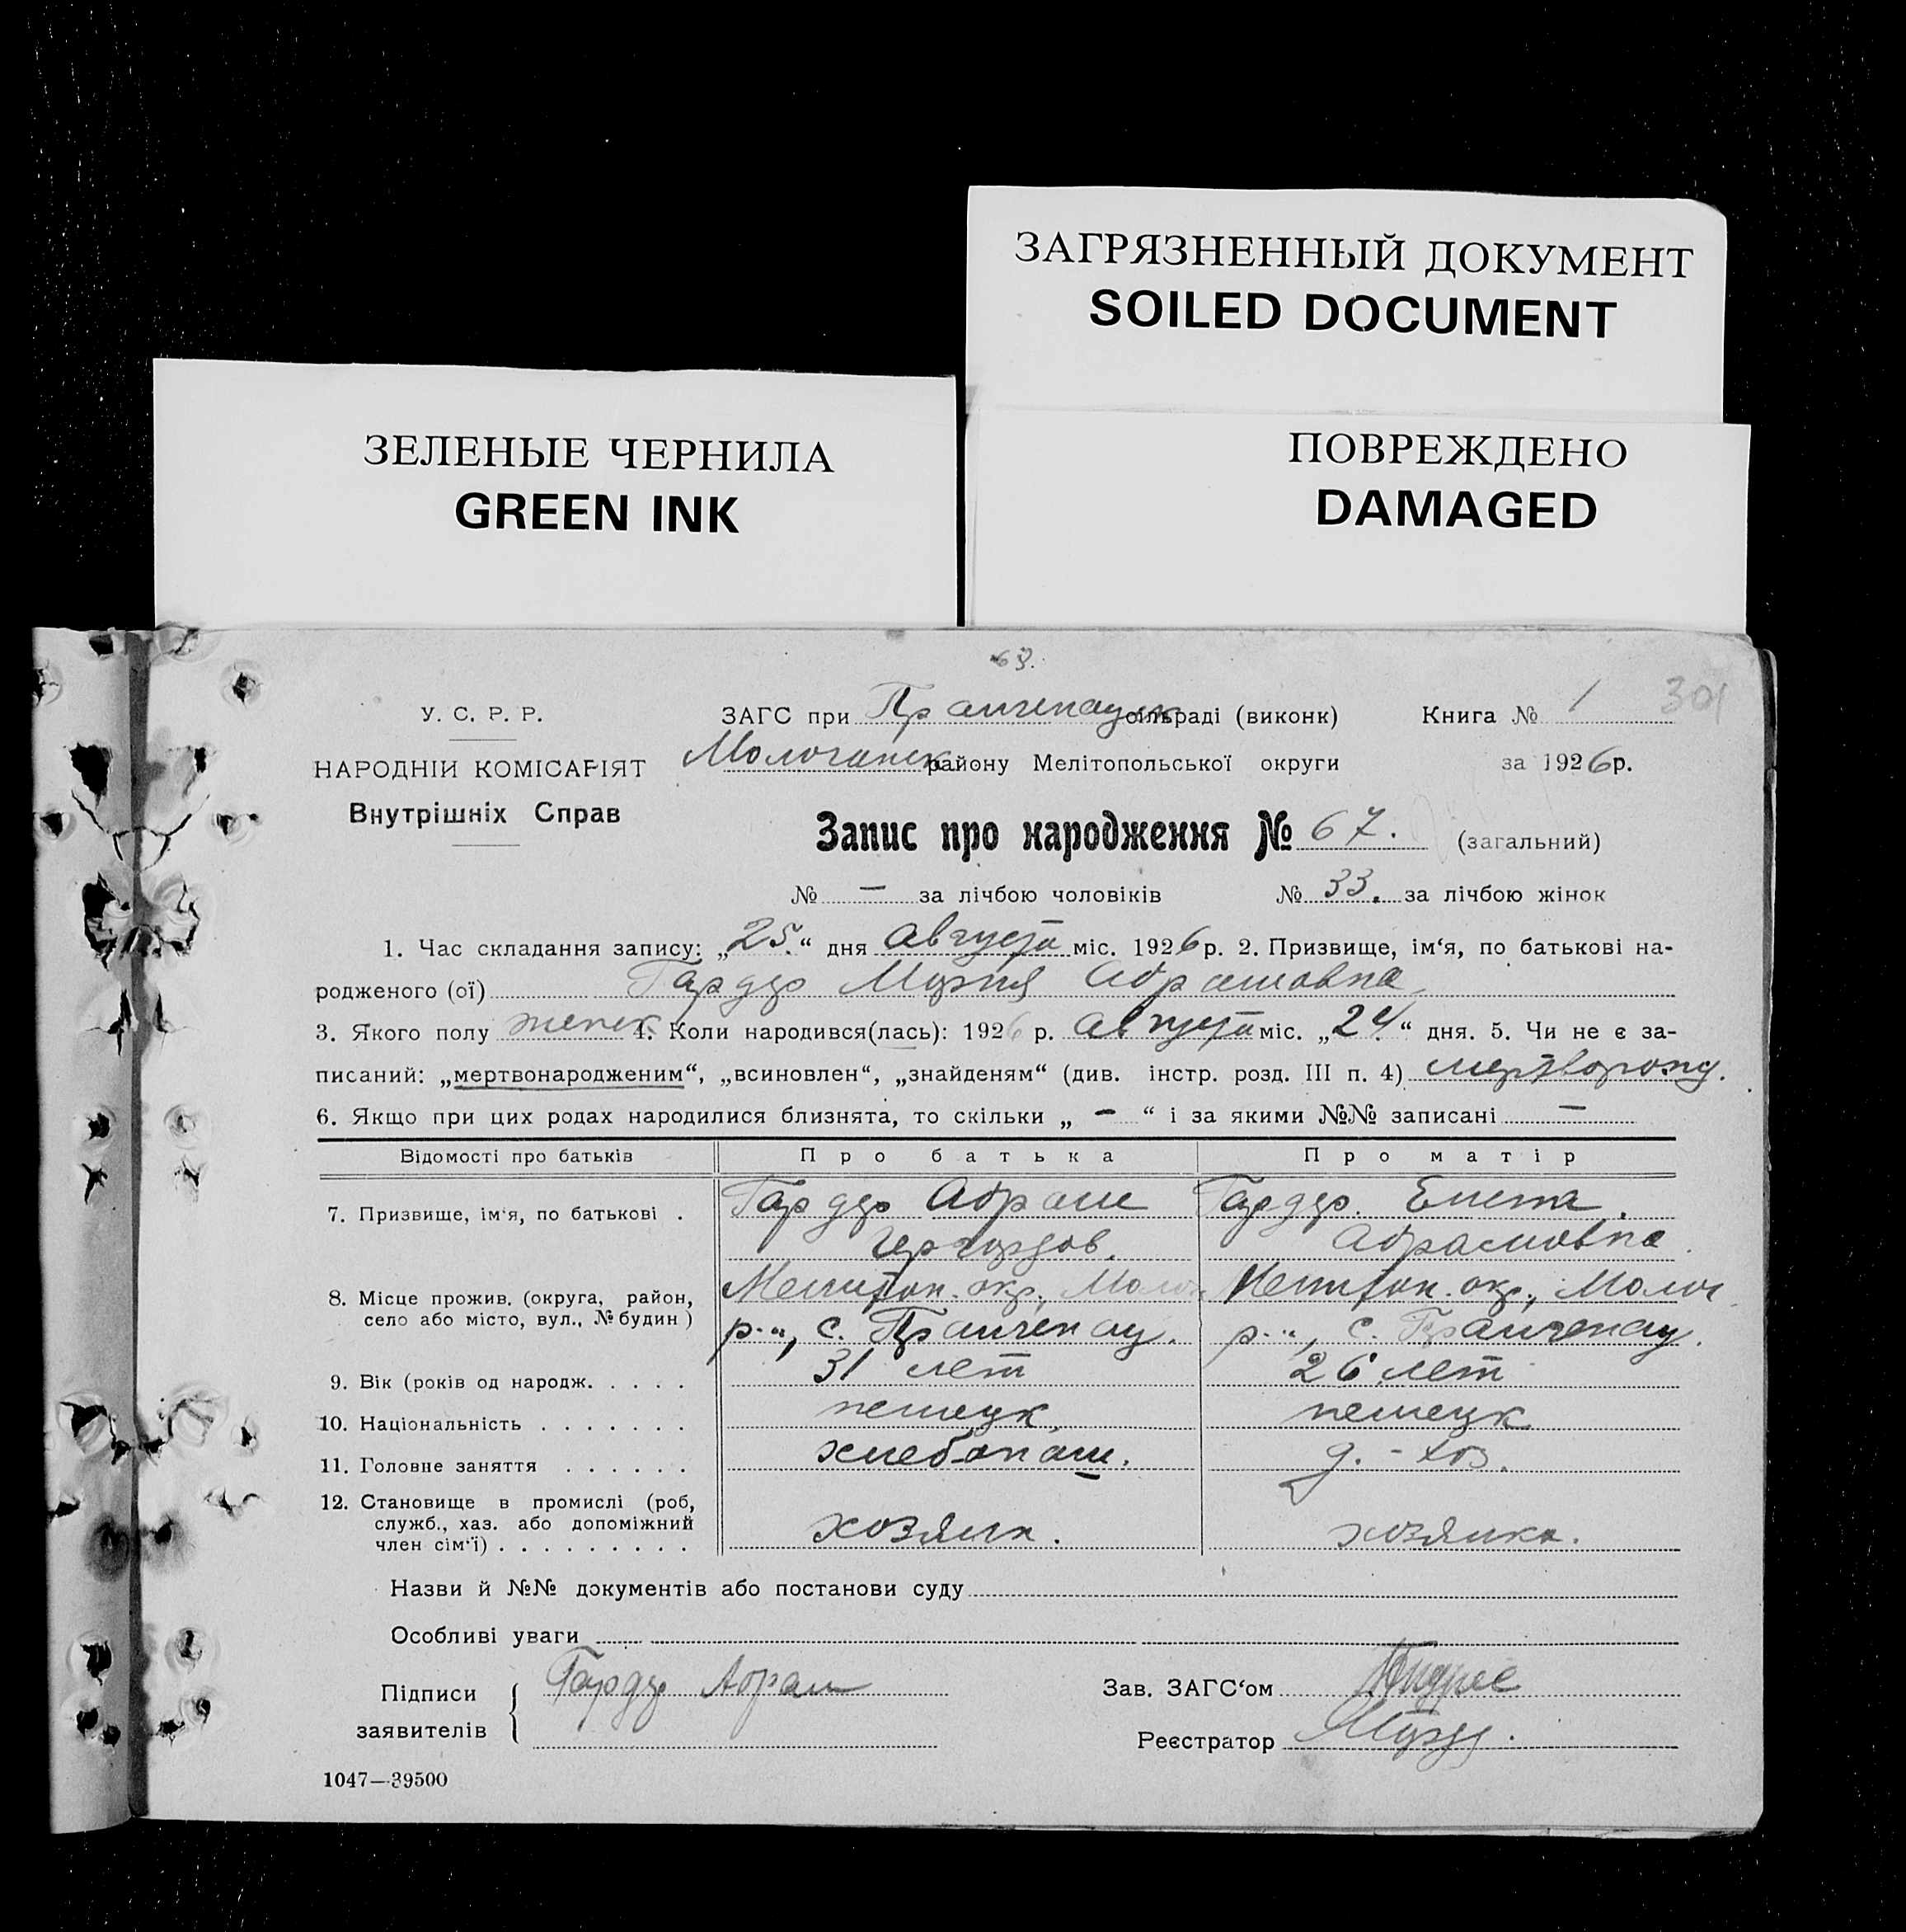 ЗАГРЯЗНЕННЫЙ ДОКУМЕНТ
SOILED DOCUMENT
ЗЕЛЕНЫЕ ЧЕРНИЛА
GREEN INK
ПОВРЕЖДЕНО
DAMAGED
68.
301
У. С. Р. Р.
НАРОДНІЙ КОМІСАРІЯТ
Внутрішніх Справ
ЗАГС при Прангенауск сільраді (виконк) Книга № 1
Молочанск району Мелітопольської округи за 1926 р.
Запис про народження № 67. (загальний)
№ — за лічбою чоловіків № 33. за лічбою жінок
1. Час складання запису: „25.“ дня августа міс. 1926 р. 2. Призвище, ім‘я, по батькові на-
родженого (ої) Гардер Мария Абрамовна
3. Якого полу женск. 4. Коли народився(лась): 1926 р. августа міс. „24.“ дня. 5. Чи не є за-
писаний: „мертвонародженим“, „всиновлен“, „знайденям“ (див. інстр. розд. III п. 4) мертворожд.
6. Якщо при цих родах народилися близнята, то скільки „ – “ і за якими №№ записані —
Відомості про батьків Про батька Про матір
7. Призвище, ім‘я, по батькові . Гардер Абрам Гардер.
Гергардов. Абрамовна.
8. Місце прожив. (округа, район,
село або місто, вул., № будин )
Мелитоп. окр., Молоч Мелитоп. окр., Молоч
р-н, с. Прангенау. р-н, с. Прангенау.
9. Вік (років од народж. . . . . 31 лет 26 лет
10. Національність . . . . . . . немецк. немецк
11. Головне заняття . . . . . . хлебопаш. д.-хоз.
12. Становище в промислі (роб,
служб., хаз. або допоміжний
член сім‘ї) . . . . . . . . . хозяин. хозяйка.
Назви й №№ документів або постанови суду
Особливі уваги
Підписи
заявителів
Гардер Абрам
Зав. ЗАГС‘ом
Реєстратор
1047—39500